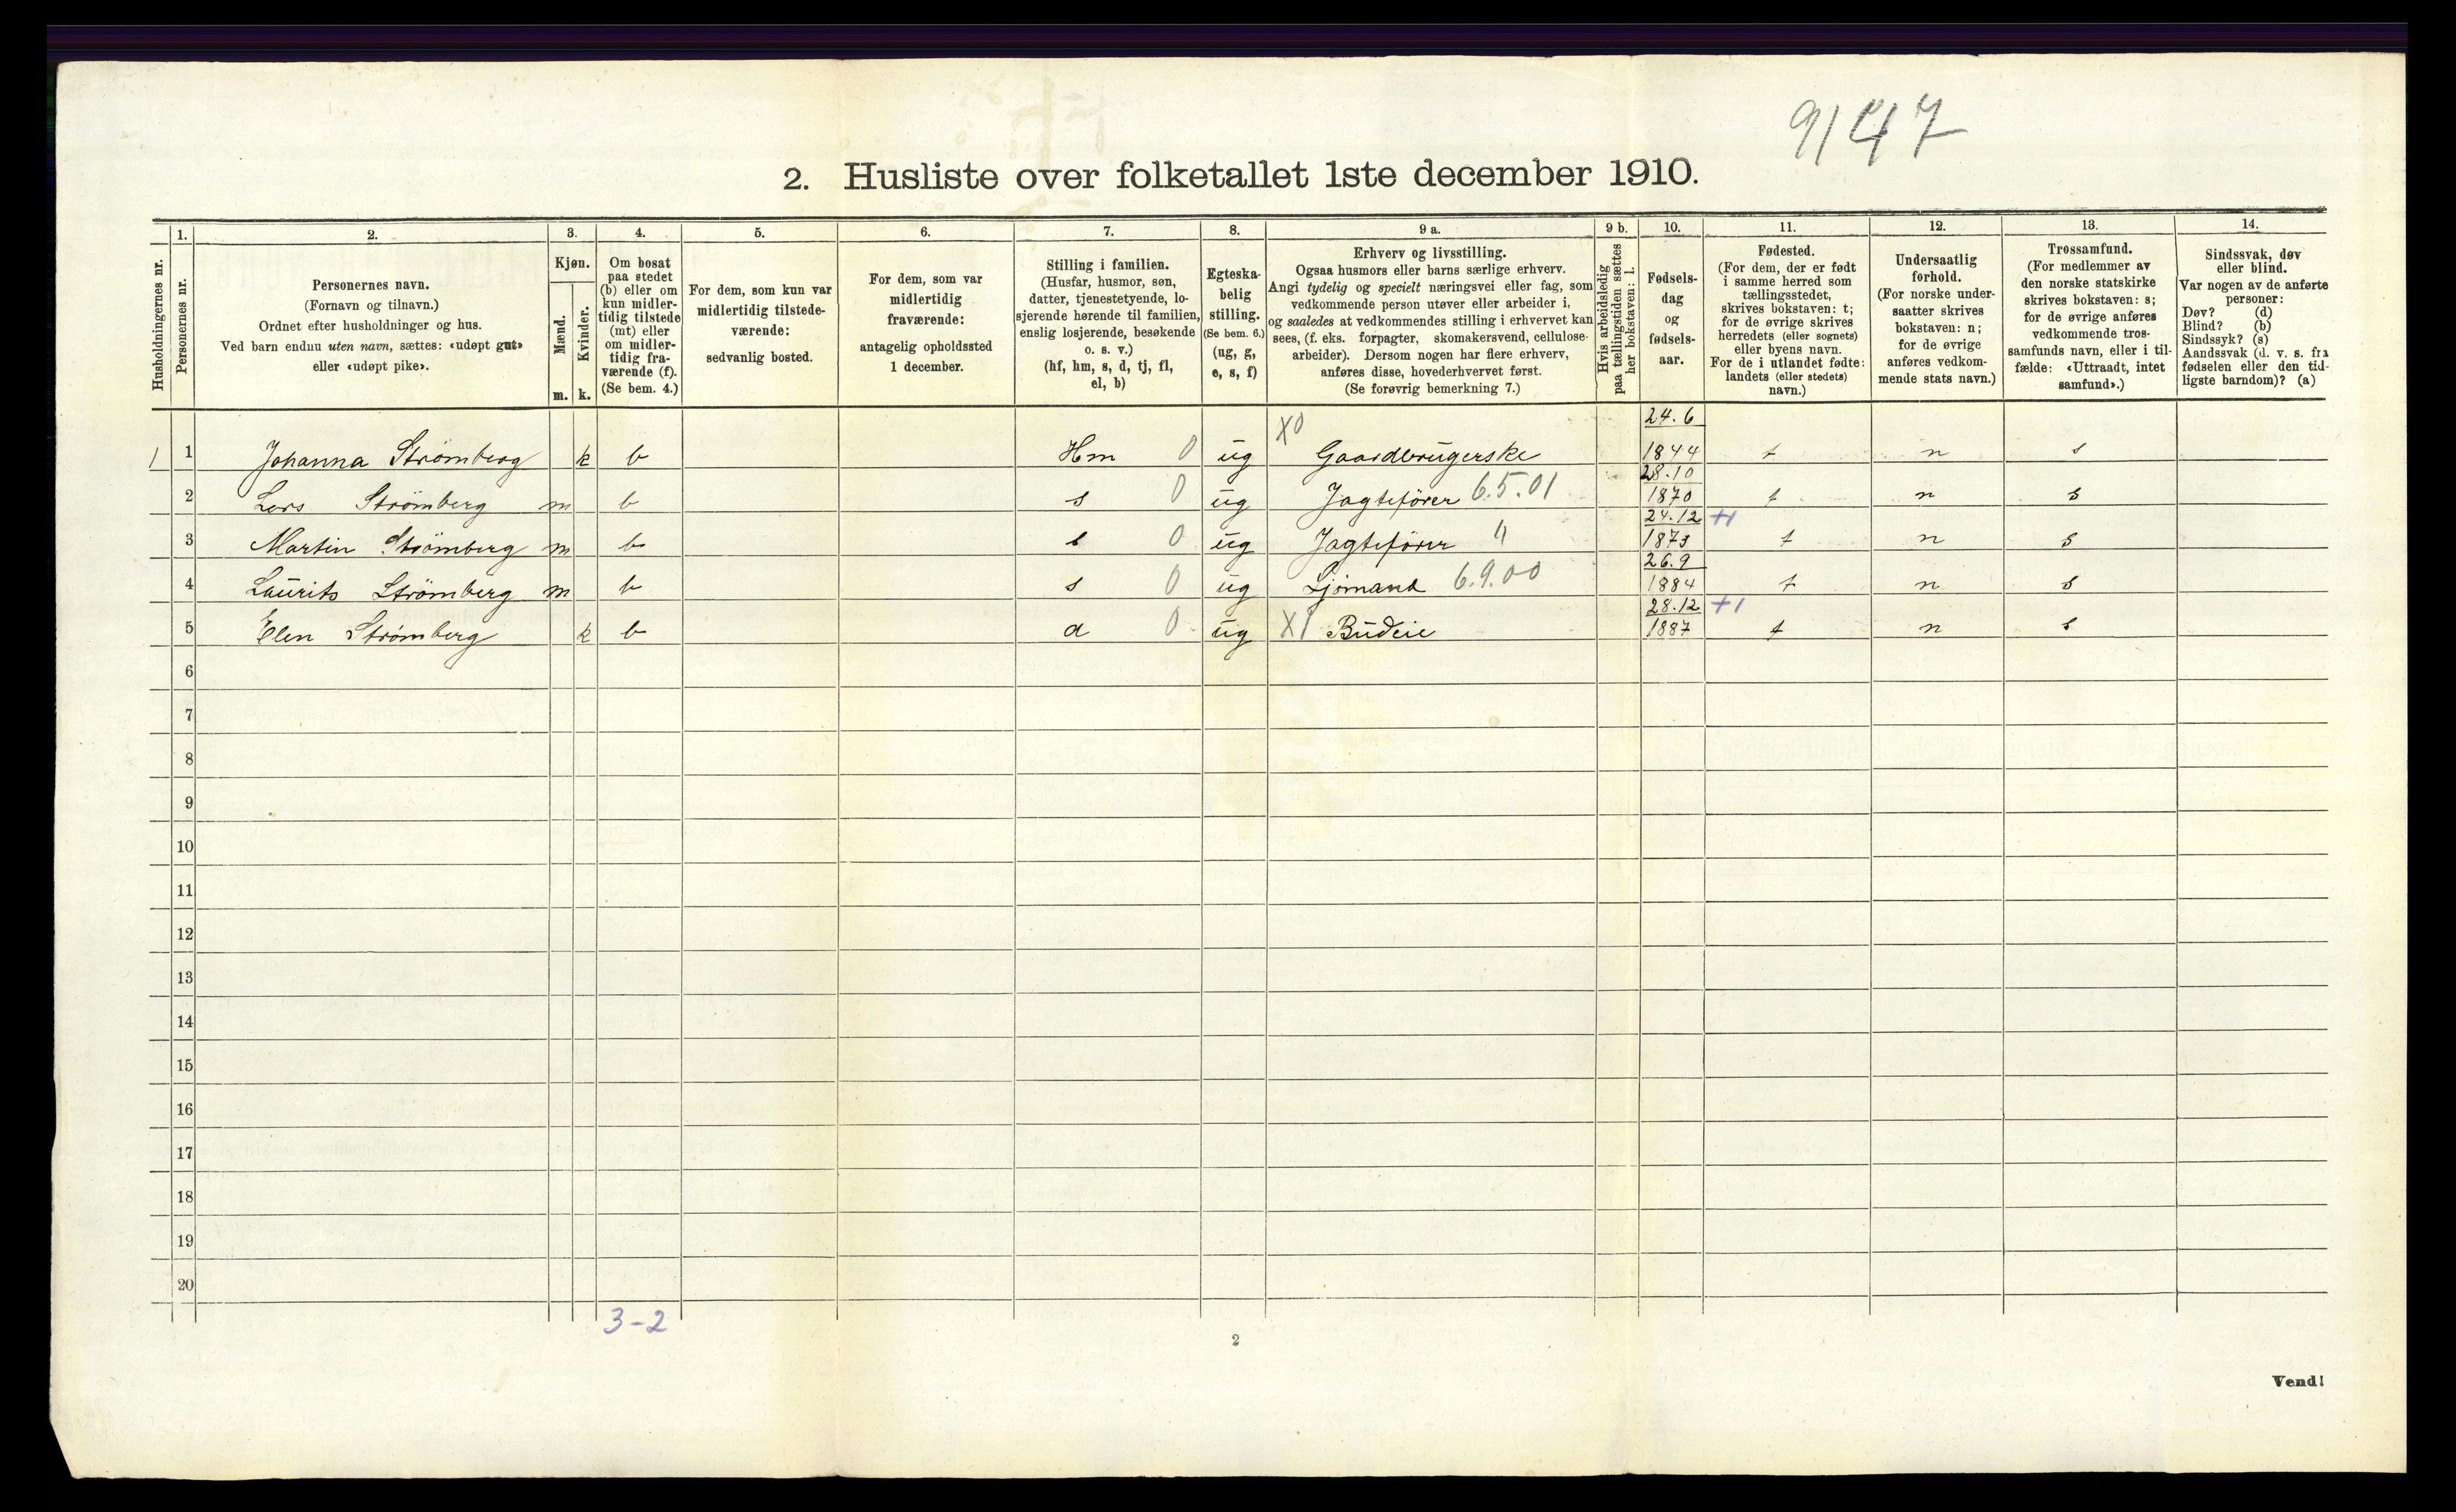 9147
2. Husliste over folketallet 1ste december 1910.
Husholdningernes nr.
1.
Personernes nr.
2.
Personernes navn.
(Fornavn og tilnavn.)
Ordnet efter husholdninger og hus.
Ved barn endnu uten navn, sættes: «udøpt gut»
eller «udøpt pike».
3.
Kjøn.
Mænd.
Kvinder.
m. k.
4.
Om bosat
paa stedet
(b) eller om
kun midler-
tidig tilstede
(mt) eller
om midler-
tidig fra-
værende (f).
(Se bem. 4.)
5.
For dem, som kun var
midlertidig tilstede-
værende:
sedvanlig bosted.
6.
For dem, som var
midlertidig
fraværende:
antagelig opholdssted
1 december.
7.
Stilling i familien.
(Husfar, husmor, søn,
datter, tjenestetyende, lo-
sjerende hørende til familien,
enslig losjerende, besøkende
o. s. v.)
(hf, hm, s, d, tj, fl,
el, b)
8.
Egteska-
belig
stilling.
(Se bem. 6.)
(ug, g,
e, s, f)
9 a.
Erhverv og livsstilling.
Ogsaa husmors eller barns særlige erhverv.
Angi tydelig og specielt næringsvei eller fag, som
vedkommende person utøver eller arbeider i,
og saaledes at vedkommendes stilling i erhvervet kan
sees, (f. eks. forpagter, skomakersvend, cellulose-
arbeider). Dersom nogen har flere erhverv,
anføres disse, hovederhvervet først.
(Se forøvrig bemerkning 7.)
9 b.
Hvis arbeidsledig
paa tællingstiden sættes
her bokstaven: l.
10.
Fødsels-
dag
og
fødsels-
aar.
11.
Fødested.
(For dem, der er født
i samme herred som
tællingsstedet,
skrives bokstaven: t;
for de øvrige skrives
herredets (eller sognets)
eller byens navn.
For de i utlandet fødte:
landets (eller stedets)
navn.)
12.
Undersaatlig
forhold.
(For norske under-
saatter skrives
bokstaven: n;
for de øvrige
anføres vedkom-
mende stats navn.)
13.
Trossamfund.
(For medlemmer av
den norske statskirke
skrives bokstaven: s;
for de øvrige anføres
vedkommende tros-
samfunds navn, eller i til-
fælde: «Uttraadt, intet
samfund».)
14.
Sindssvak, døv
eller blind.
Var nogen av de anførte
personer:
Døv? (d)
Blind? (b)
Sindssyk? (s)
Aandssvak (d. v. s. fra
fødselen eller den tid-
ligste barndom)? (a)
X0 24.6
1 1 Johanna Strømberg k b Hm 0 ug Gaardbrugerske 1844 t n s
28.10
2 Lars Strømberg m b s 0 ug Jagtefører 6.5.01 1870 t n s
24.12 +1
3 Martin Strømberg m b s 0 ug Jagtefører " 1873 t n s
26.9
4 Laurits Strømberg m b s 0 ug Sjømand 6.9.00 1884 t n s
28.12 +1
5 Elen Strømberg k b d 0 ug X1 Budeie 1887 t n s
6
7
8
9
10
11
12
13
14
15
16
17
18
19
20
3-2
2
Vend!